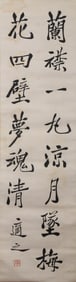 蘭襟一九涼月墜梅
花四壁夢魂清 適之